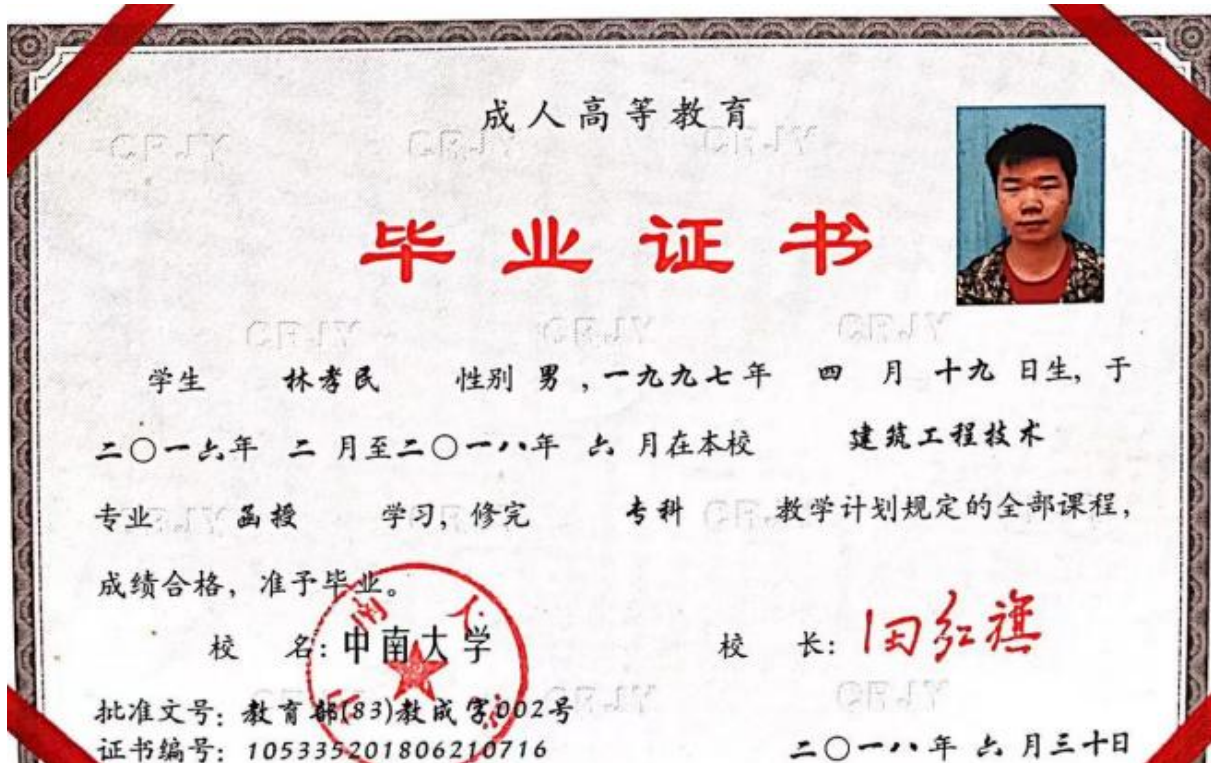 成人高等教育
毕业证书
学生 林孝民 性别 男 ,一九九七年 四 月 十九 日生, 于
二〇一六年 二 月至二〇一八年 六 月在本校 建筑工程技术
专业 函授 学习, 修完 专科 教学计划规定的全部课程,
成绩合格, 准予毕业。
校 名: 中南大学 校 长: 田红旗
批准文号: 教育部(83)教成字002号
证书编号: 105335201806210716 二〇一八年 六 月三十日